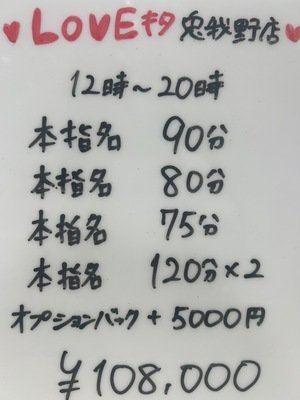 ♥LOVEキタ兎我野店♥
12時〜20時
本指名 90分
本指名 80分
本指名 75分
本指名 120分×2
オプションバック + 5000円
¥108,000